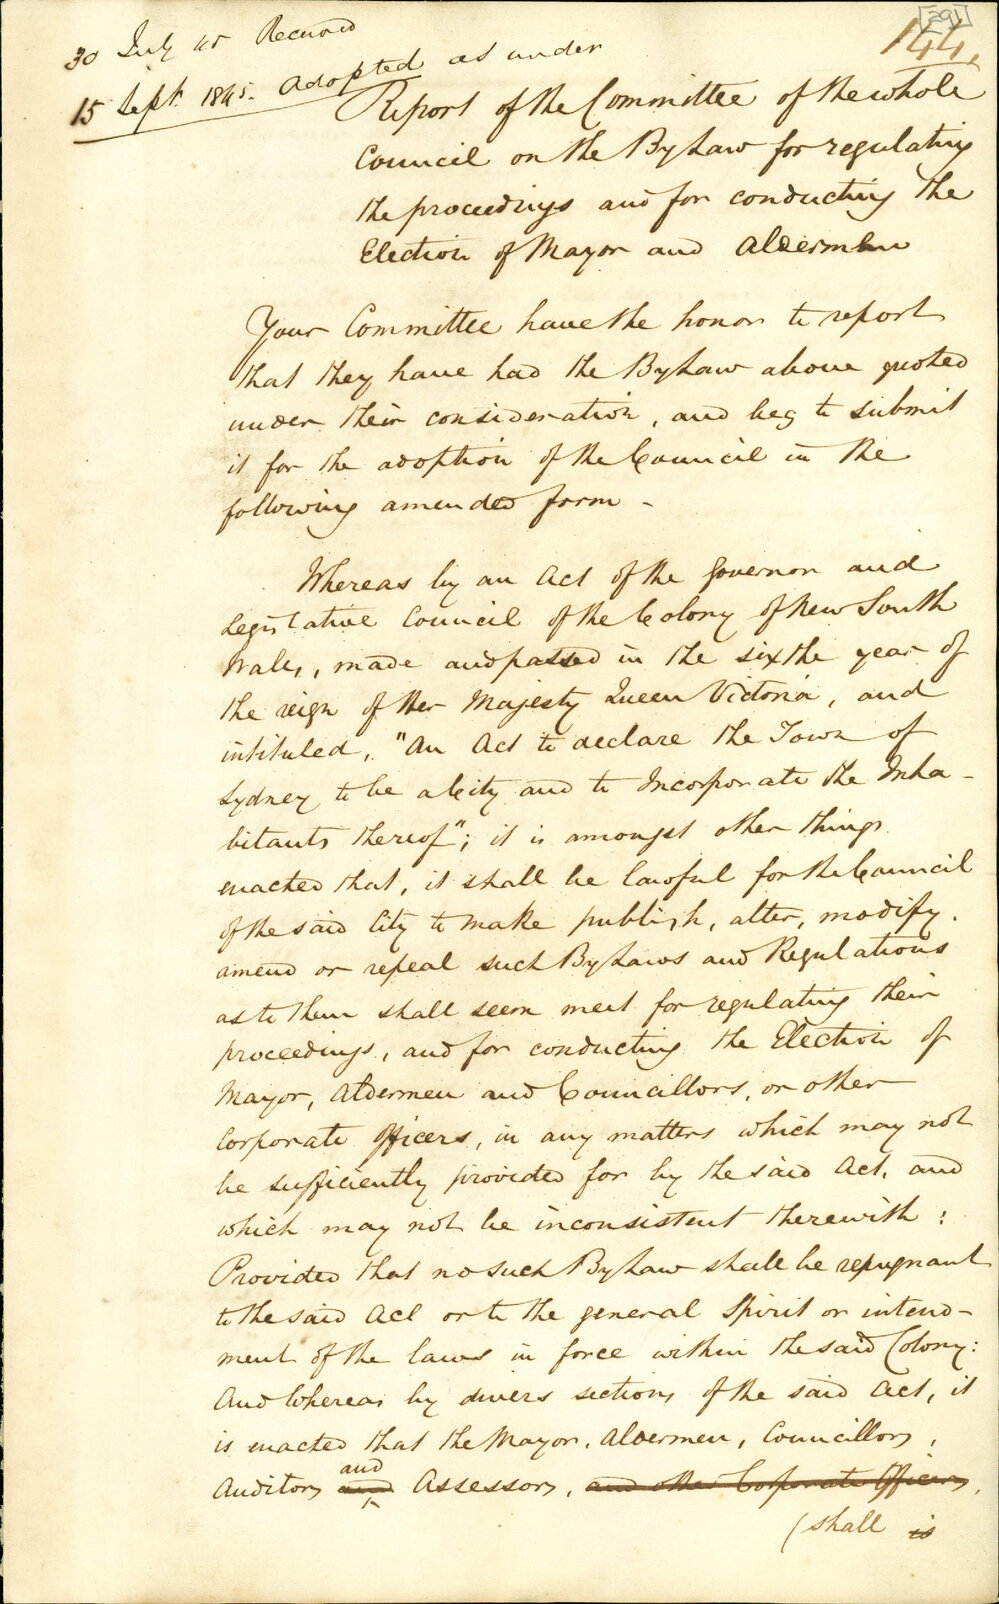 [291]
144.
30 July 45 Received
15 Sept. 1845. Adopted as under
Report of the Committee of the whole
Council on the By Law for regulating
the proceedings and for conducting the
Election of Mayor and Aldermen
Your Committee have the honor to report
that they have had the By Law above quoted
under their consideration, and beg to submit
it for the adoption of the Council in the
following amended form -
Whereas by an Act of the Governor and
Legislative Council of the Colony of New South
Wales, made and passed in the sixthe year of
the reign of Her Majesty Queen Victoria, and
intituled, "An Act to declare the Town of
Sydney to be a City and to Incorporate the Inha-
bitants thereof"; it is amongst other things
enacted that, it shall be lawful for the Council
of the said City to make publish, alter, modify.
amend or repeal such By Laws and Regulations
as to them shall seem meet for regulating their
proceedings, and for conducting the Election of
Mayor, Aldermen and Councillors, or other
Corporate Officers, in any matters which may not
be sufficiently provided for by the said Act, and
which may not be inconsistent therewith:
Provided that no such By Law shall be repugnant
to the said Act or to the general Spirit or intend-
ment of the laws in force within the said Colony:
And Whereas by divers sections of the said Act, it
is enacted that the Mayor, Aldermen, Councillors,
and
Auditors and Assessors, and other Corporate Officers,
(shall is